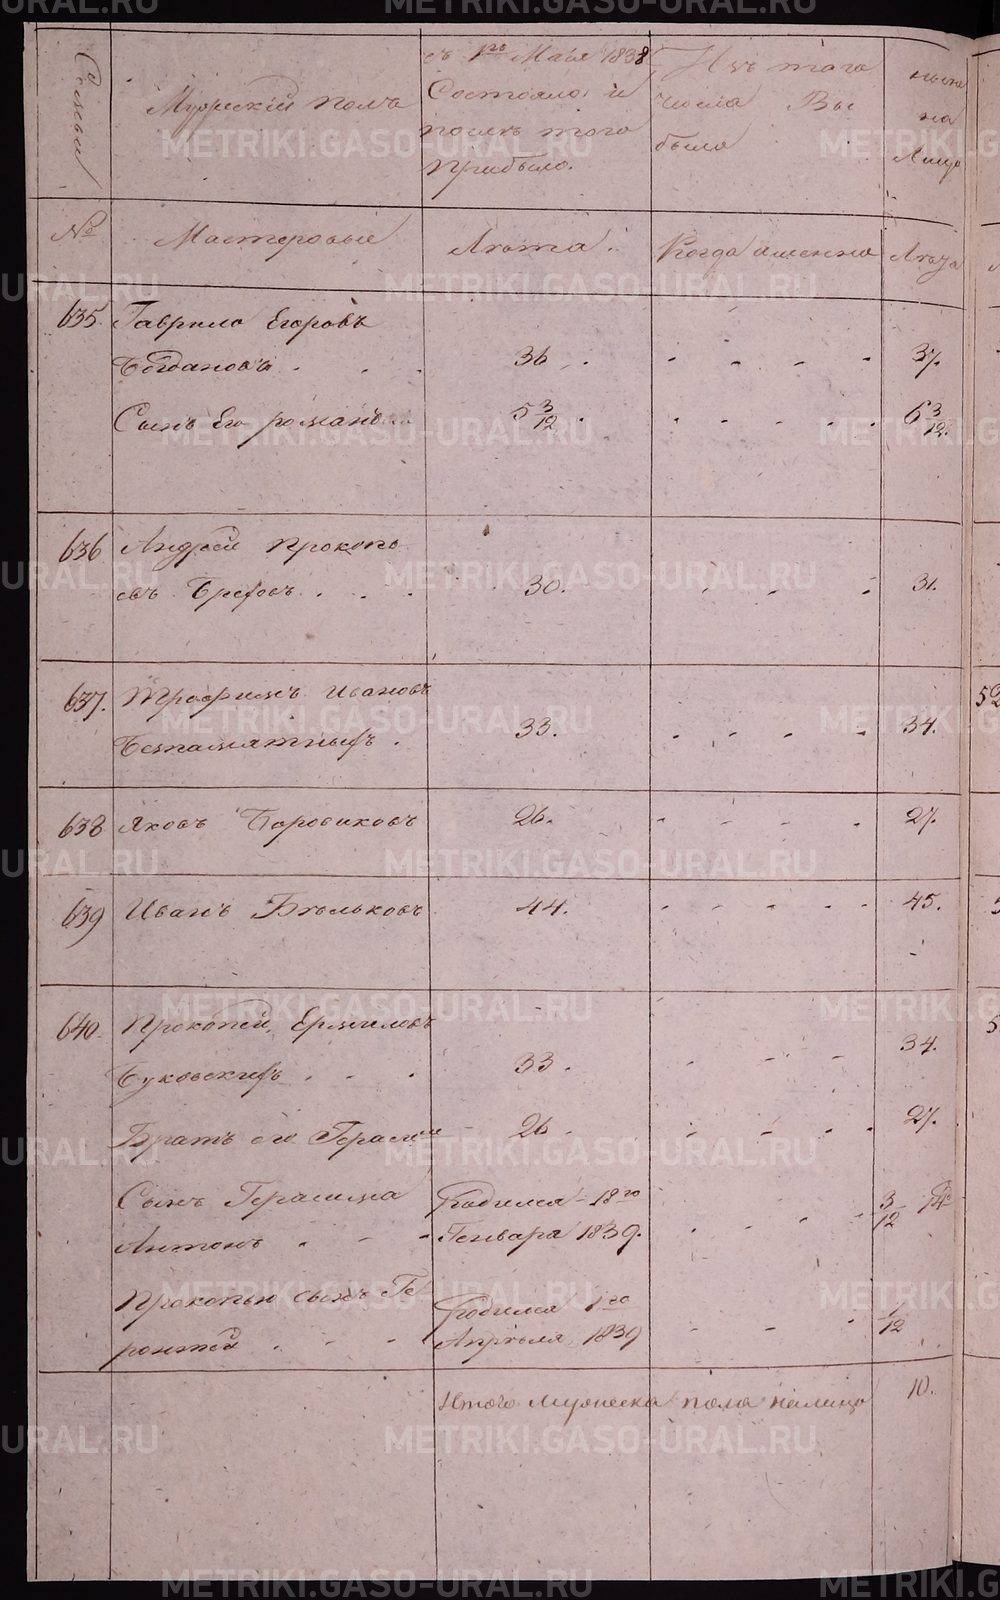 Семьи
Мужескій полъ
съ 1го Маія 1838
Состояло и
послѣ того
прибыло.
Изъ того
числа Вы
было
нынѣ
на
Лицо
№
Мастеровые
Лѣта.
Когда именно
Лѣта
635. Гаврило Егоровъ
Богдановъ . . . 36 . . - - - - 37.
Сынъ Его романъ 5 3/12 . - - - - 6 3/12.
636 Андрей Прокопь
евъ Брефовъ . . . 30. - - - 31.
637. Трофимъ Ивановъ
Безпамятныхъ . 33. - - - - 34.
638 Яковъ Боровиковъ 26. - - - - 27.
639 Иванъ Бѣльковъ 44. - - - - - 45.
640. Прокопей Ермиловъ
Буковскихъ . - . 33. - - - 34.
Братъ его Герасим 26. - - - - 27.
Сынъ Герасима Родился 18го
Антонъ . - - Генваря 1839. - - - - 3/12
Прокопью сынъ Ге Родился 1го
ронтей . - - Апрѣля 1839 - - - 1/12
Итого Мужеска пола налицо 10.
METRIKI.GASO-URAL.RU